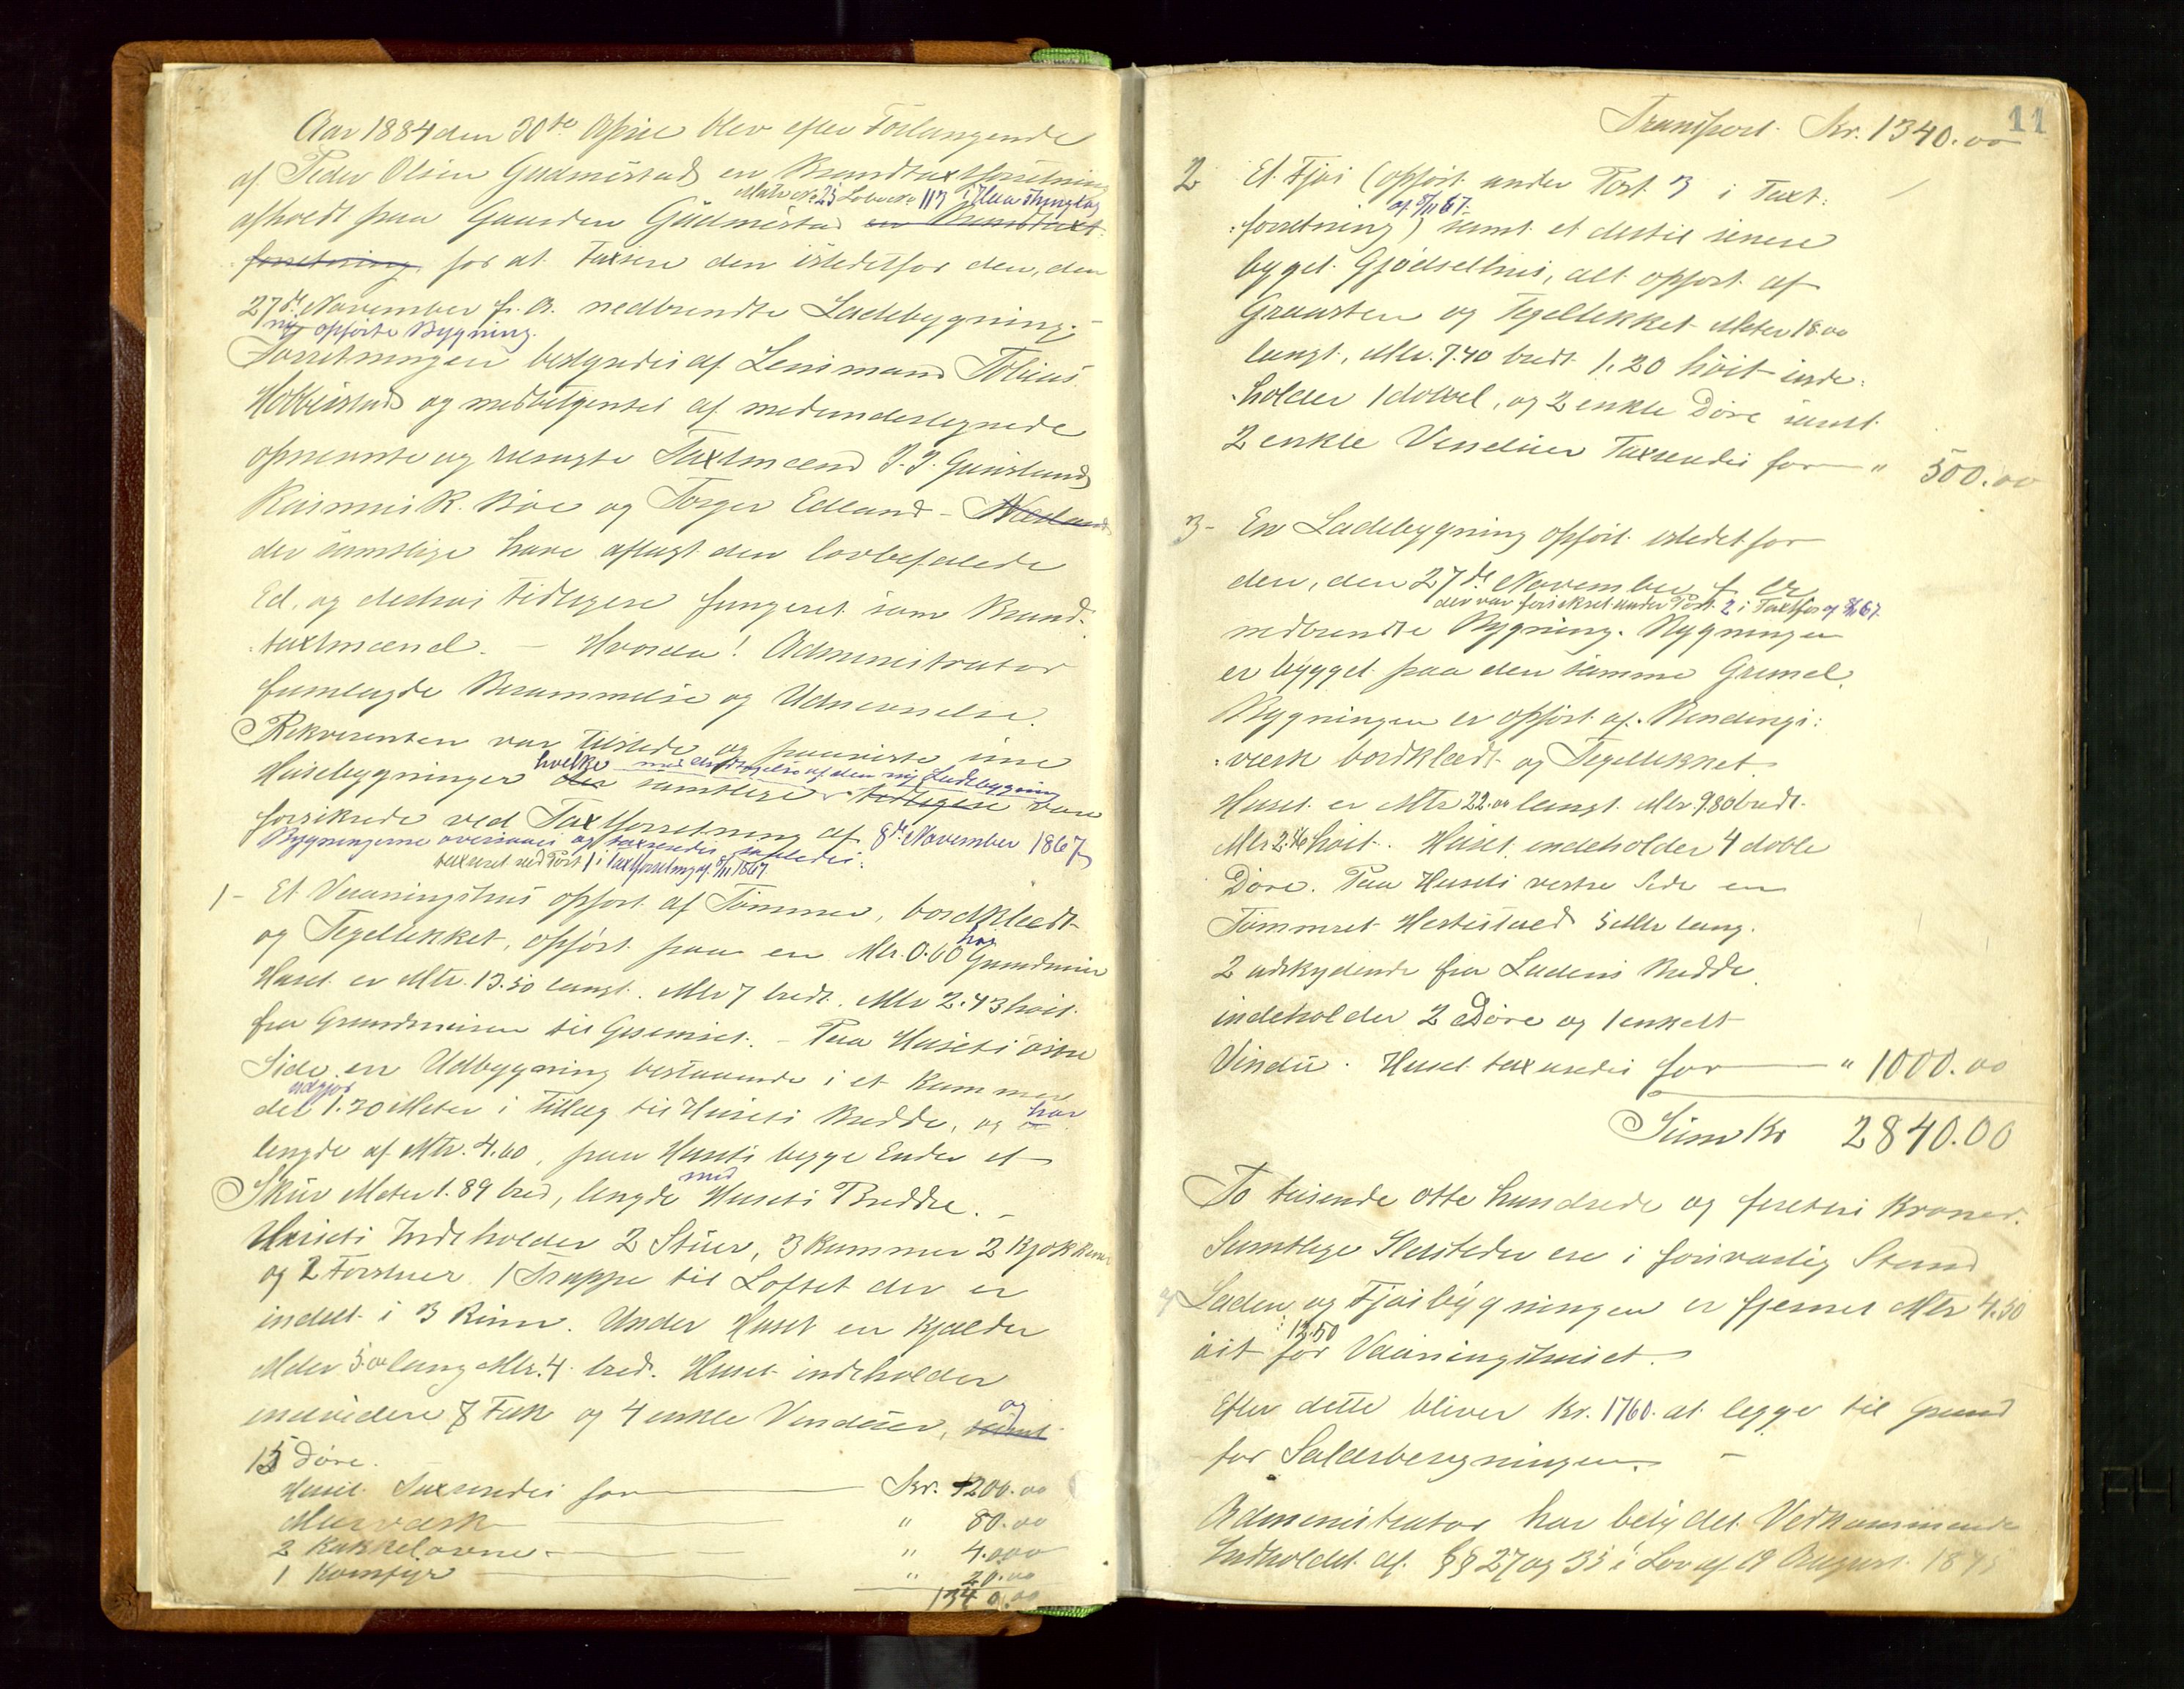 Aar 1884 den 30te April blev efter Forlangende
af Peder Olsen Gudmestad en Brandtaxtforretning
Matr No 25 Løbe No 113 i Haa Thinglag
afholdt paa Gaarden Gudmestad en Brandtaxt-
forretning for at taxere den istedetfor den, den
27de November f. A. nedbrændte Ladebygning;-
ny opførte Bygning.
Forretningen bestyredes af Lensmand Tobias
Hobberstad og medbetjentes af medundertegnede
opnævnte og Taxtmænd J. J. Grimslund
Rasmus K. Bøe og Torger Edland - Nærland
der samtlige have aflagt den lovbefalede
Ed, og desuden tidligere fungeret som Brand-
taxtmænd. - Hvorda! Administrator
fremlagde Berammelse og Udnævnelse.
Rekvirenten var tilstede og paaviste sine
hvilke med Undtagelse af den ny Ladebygning
Husebygninger der samtlige tidligere vare
forsikrede ved Taxtforretning af 8de November 1867
Bygningerne oversaaes og taxeredes saaledes:
taxeret ved Post 1 i Taxtforretning af 8/11 1867
1- Et Vaaningshus opført af Tømmer, bordklædt
og Tegeltekket, opført paa en Mtr. 0.60 høi Grundmur
Huset er Mtr. 13.50 langt. Mtr 7 bredt. Mtr 2.43 høit
fra Grundmuren til Gesemset. - Paa Husets østre
Side en Udbygning bestaaende i et Kammer
udgjør
det 1.20 Meter i Tillæg til Husets Bredde, og har
længde af Mtr. 4.60, paa Husets begge Ender et
Skur Meter 1.89 bred, længde med Husets Bredde. -
Huset Indeholder 2 Stuer, 3 Kammer 2 Kjøkkener
og 2 Forstuer 1 Trappe til Loftet der er
indelt i 3 Rum. Under Huset en Kjælder
Meter 5.00 lang Mtr. 4 bred. Huset indeholder
endvidere 8 Fak og 4 enkle Vinduer, samt og
15 Døre.
Huset Taxeredes for Kr. 1200.00
Murværk " 80.00
2 Kakkelovne " 40.00
1 Komfyr " 20.00
1340.00
11
Transport Kr. 1340.00
2 Et Fjøs (opført under Post 3 i Taxt:
af 8/11 67.
:forretning) samt et dertil senere
bygget Gjødselhus, alt opført af
Graasten og Tegeltekket Meter 18.00
langt, Mtr. 7.40 bredt 1.20 høit inde:
:holder 1 dobbel, og 2 enkle Døre samt
2 enkle Vinduer Taxeredes for " 500.00
3- En Ladebygning opført istedetfor
den, den 27de November f. Ar
der var forsikret under Post 2 i Taxtfor af 8/11 67.
nedbrændte Bygning. Bygningen
er bygget paa den samme Grund.
Bygningen er opført af Bindings:
:værk bordklædt og Tegeltekket.
Huset er Mtr 22.00 langt Mtr 9.80 bredt.
Mtr 2.46 høit. Huset indeholder 4 doble
Døre. Paa Husets vestre Side en
Tømmret Hestestald 5 Mtr lang.
2 udskydende fra Ladens Bredde.
indeholder 2 Døre og 1 enkelt
Vindu. Huset taxeredes for " 1000.00
Sum Kr 2840.00
To tusende otte hundrede og førti Kroner.
Samtlige Ildsteder ere i forsvarlig Stand
Laden og Fjøsbygningen er fjernet Mtr 4.50
: 12.50
øst for Vaaningshuset.
Efter dette bliver Kr. 1760. at lægge til Grund
for Salærberegningen. -
Administrator har betydet Vedkommende
Indholdet af §§ 27 og 35 i Lov af 19 August 1845